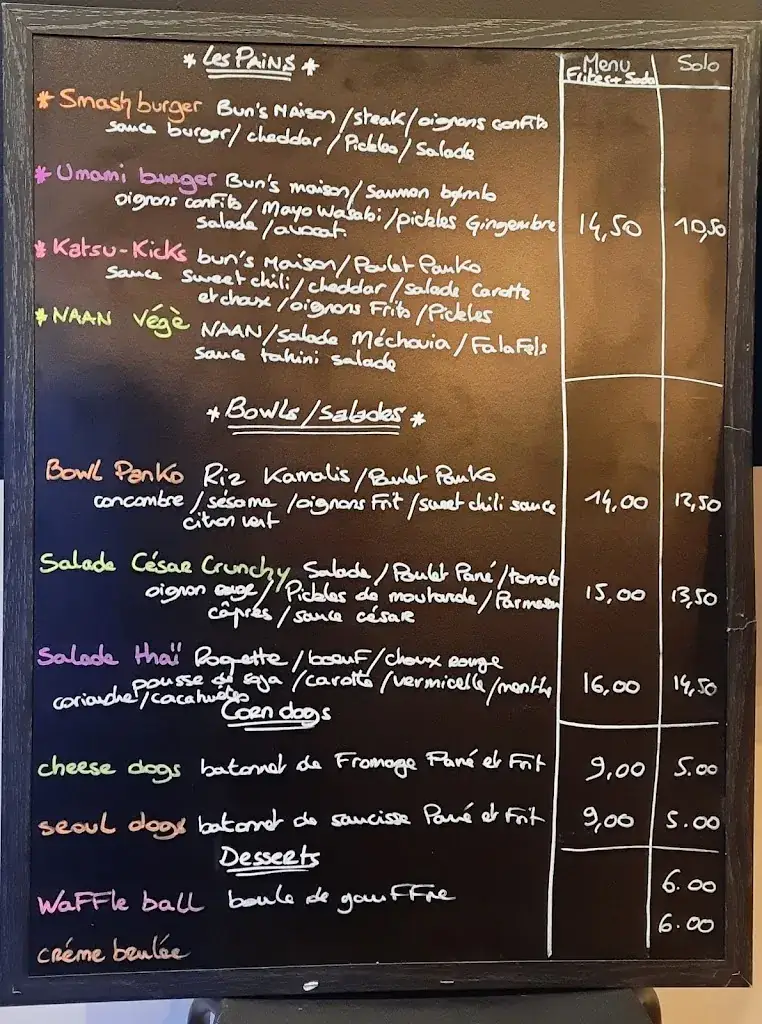 * Les Pains *
Menu Frites + Soda
Solo
* Smash burger Bun's Maison / steak / oignons confits
sauce burger / cheddar / Pickles / Salade
* Umami burger Bun's maison / Saumon
oignons confits / Mayo Wasabi / pickles Gingembre
salade / avocat.
14,50 10,50
* Katsu-Kicks bun's Maison / Poulet Panko
sauce sweet chili / cheddar / salade Carotte
et choux / oignons Frits / Pickles
* NAAN végè NAAN / Salade Méchouia / FalaFels
sauce tahini salade
* Bowls / Salades *
Bowl Panko Riz Kamalis / Poulet Panko
concombre / sésame / oignons Frit / sweet chili sauce
citron vert
14,00 12,50
Salade César Crunchy Salade / Poulet Pané / tomate
oignon rouge / Pickles de moutarde / Parmesan
câpres / sauce césar
15,00 13,50
Salade thaï Roquette / boeuf / choux rouge
pousse de soja / carotte / vermicelle / menthe
coriandre / cacahuètes
16,00 14,50
Corn dogs
cheese dogs batonnet de Fromage Pané et Frit 9,00 5.00
seoul dogs batonnet de saucisse Pané et Frit 9,00 5.00
Desserts
Waffle ball boule de gauffre 6.00
créme brulée 6.00